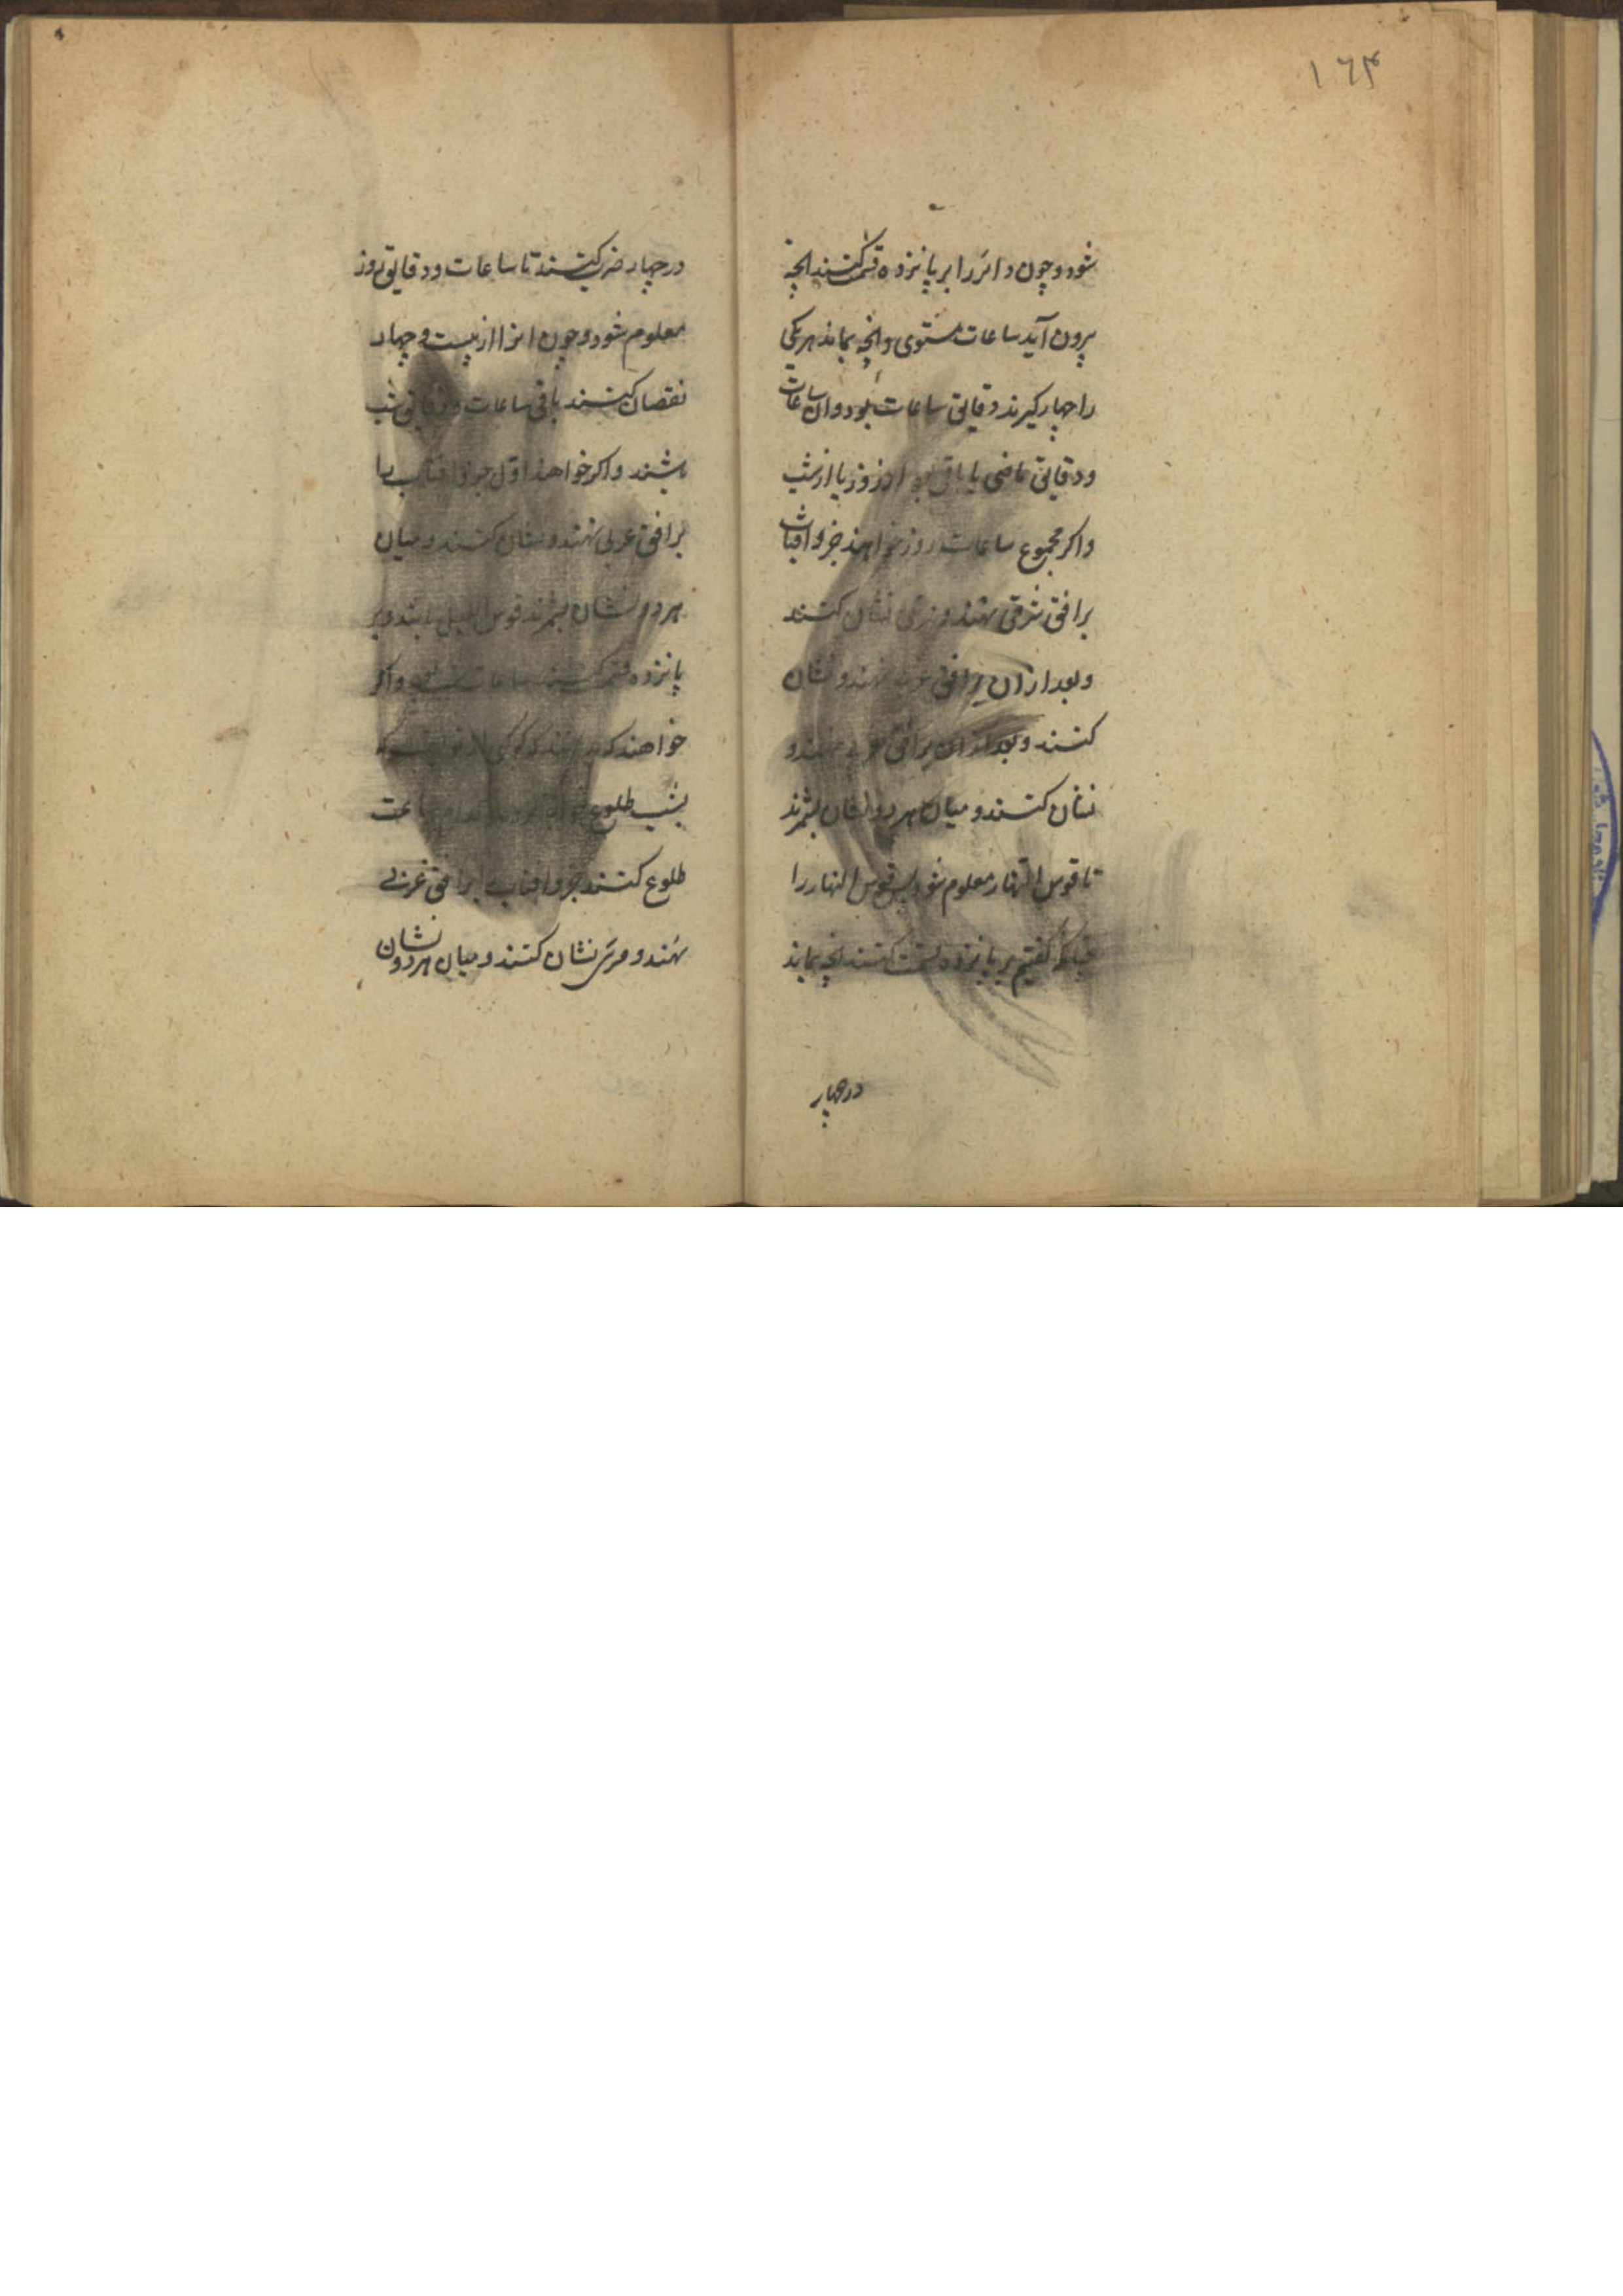 ۱۶۴
شود و چون دائر را بر پانزده قسمت کنند انچه
بیرون آید ساعات مستوی و انچه بماند هر یکی
را چهار گیرند دقایق ساعات بود و ان ساعات
و دقایق ماضی یا باقی بود از روز یا از شب
و اگر مجموع ساعات روز خواهند جزو افتاب
بر افق شرقی نهند و مری نشان کنند
و بعد از ان بر افق نهند و نشان
کنند و بعد از ان بر افق نهند و
نشان کنند و میان هر دو نشان بشمرند
تا قوس النهار معلوم شود پس قوس النهار را
چنانکه گفتیم بر پانزده قسمت کنند انچه بماند
در چهار
در چهار ضرب کنند تا ساعات و دقایق روز
معلوم شود و چون انرا از بیست و چهار
نقصان کنند باقی ساعات و دقایق شب
باشند و اگر خواهند اول جزو افتاب را
بر افق غربی نهند و نشان کنند و میان
هر دو نشان بشمرند قوس اللیل و بر
پانزده قسمت کنند ساعات شب و اگر
خواهند که کوکبی از
بشب طلوع ساعت
طلوع کنند جزو افتاب را بر افق غربی
نهند و مری نشان کنند و میان هر دو نشان